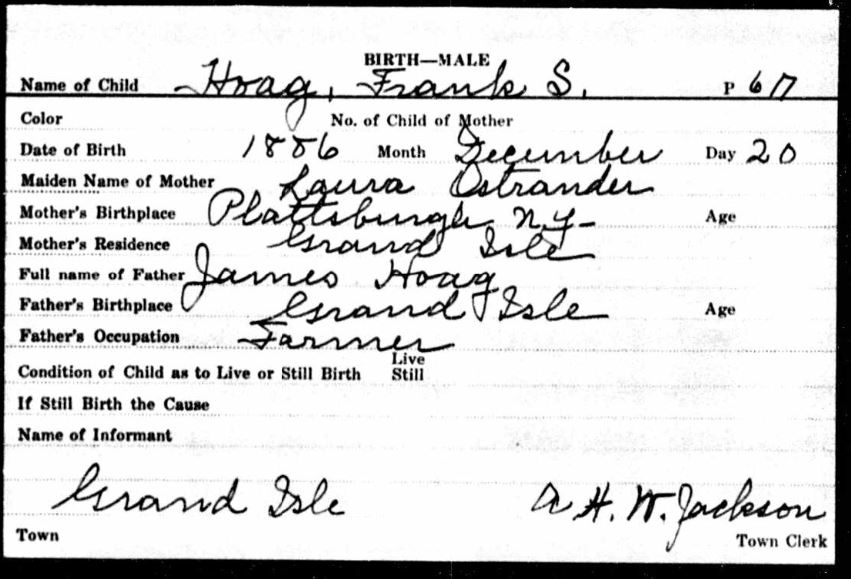 BIRTH—MALE
Name of Child Hoag, Frank S. P 67
Color No. of Child of Mother
Date of Birth 1886 Month December Day 20
Maiden Name of Mother Laura Ostrander
Mother's Birthplace Plattsburgh N.Y. Age
Mother's Residence Grand Isle
Full name of Father James Hoag
Father's Birthplace Grand Isle Age
Father's Occupation Farmer
Live
Condition of Child as to Live or Still Birth Still
If Still Birth the Cause
Name of Informant
Grand Isle A. H. W. Jackson
Town Town Clerk